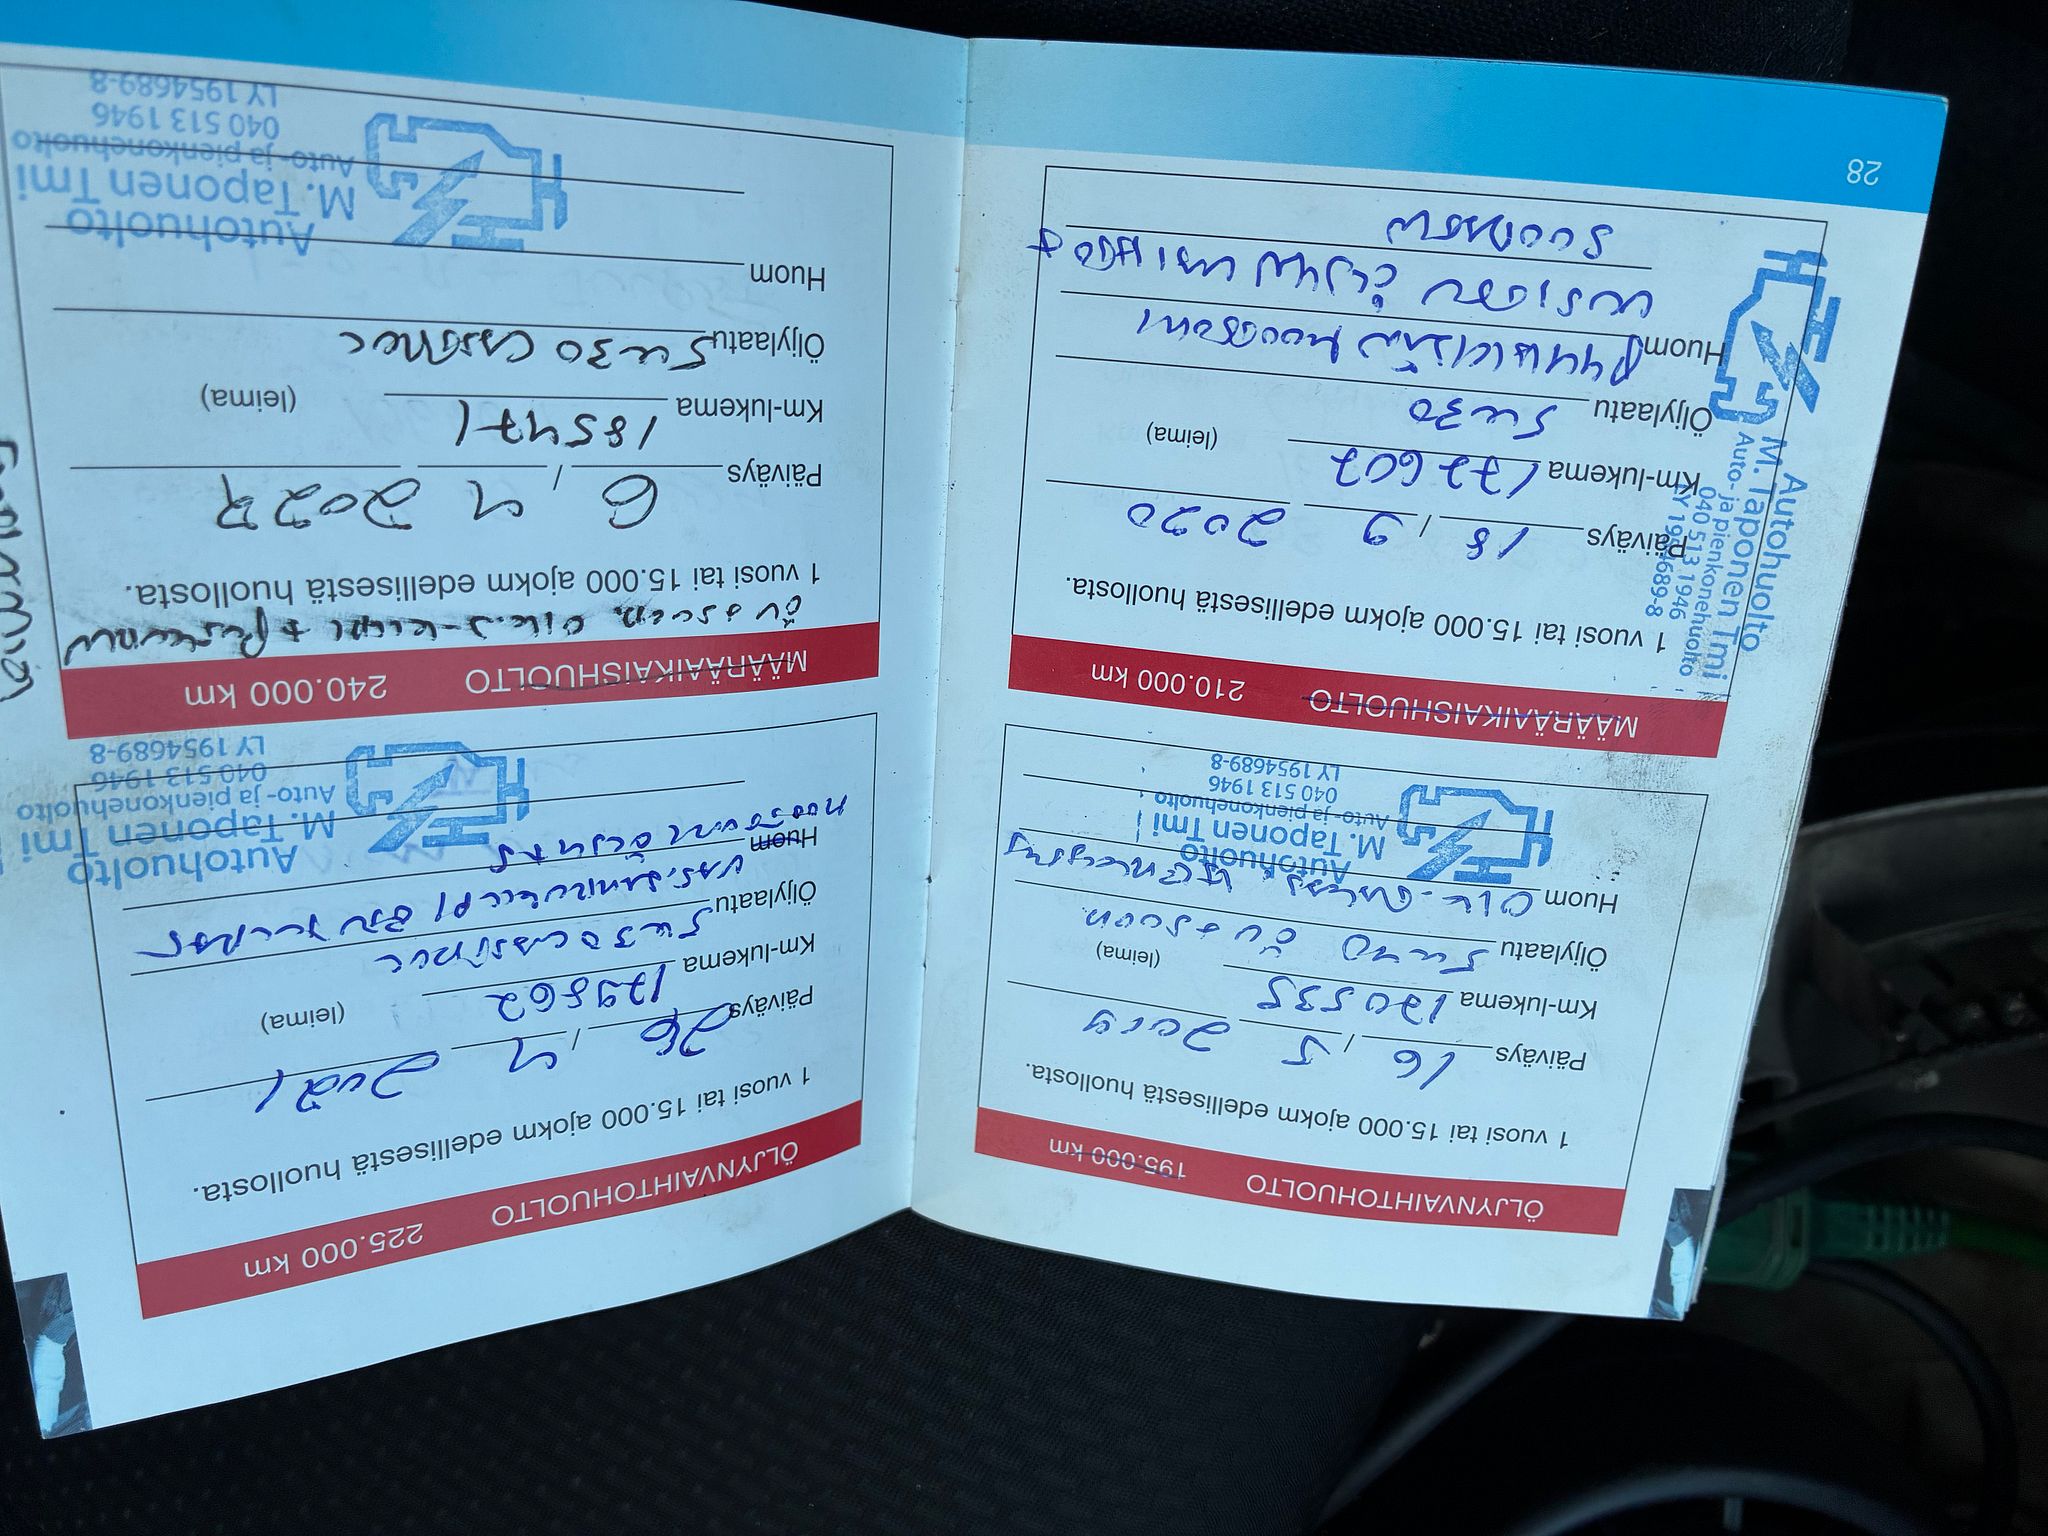 ÖLJYNVAIHTOHUOLTO 195.000 km
1 vuosi tai 15.000 ajokm edellisestä huollosta.
Päiväys 16 / 5 2019
Km-lukema 170535 (leima)
Öljylaatu 5w40 ÖV + SUOD.
Huom OIK.
Autohuolto
M. Taponen Tmi
Auto- ja pienkonehuolto
040 513 1946
LY 1954689-8
MÄÄRÄAIKAISHUOLTO 210.000 km
1 vuosi tai 15.000 ajokm edellisestä huollosta.
Päiväys 18 / 9 2020
Km-lukema 177607 (leima)
Öljylaatu 5w30
Huom
SUODATIN
Autohuolto
M. Taponen Tmi
Auto- ja pienkonehuolto
040 513 1946
LY 1954689-8
28
ÖLJYNVAIHTOHUOLTO 225.000 km
1 vuosi tai 15.000 ajokm edellisestä huollosta.
Päiväys 26 / 4 2021
Km-lukema 179862 (leima)
Öljylaatu 5w30
Huom
Autohuolto
M. Taponen Tmi
Auto- ja pienkonehuolto
040 513 1946
LY 1954689-8
MÄÄRÄAIKAISHUOLTO 240.000 km
1 vuosi tai 15.000 ajokm edellisestä huollosta.
Päiväys 6 / 4 2022
Km-lukema 185471 (leima)
Öljylaatu 5w30
Huom
Autohuolto
M. Taponen Tmi
Auto- ja pienkonehuolto
040 513 1946
LY 1954689-8